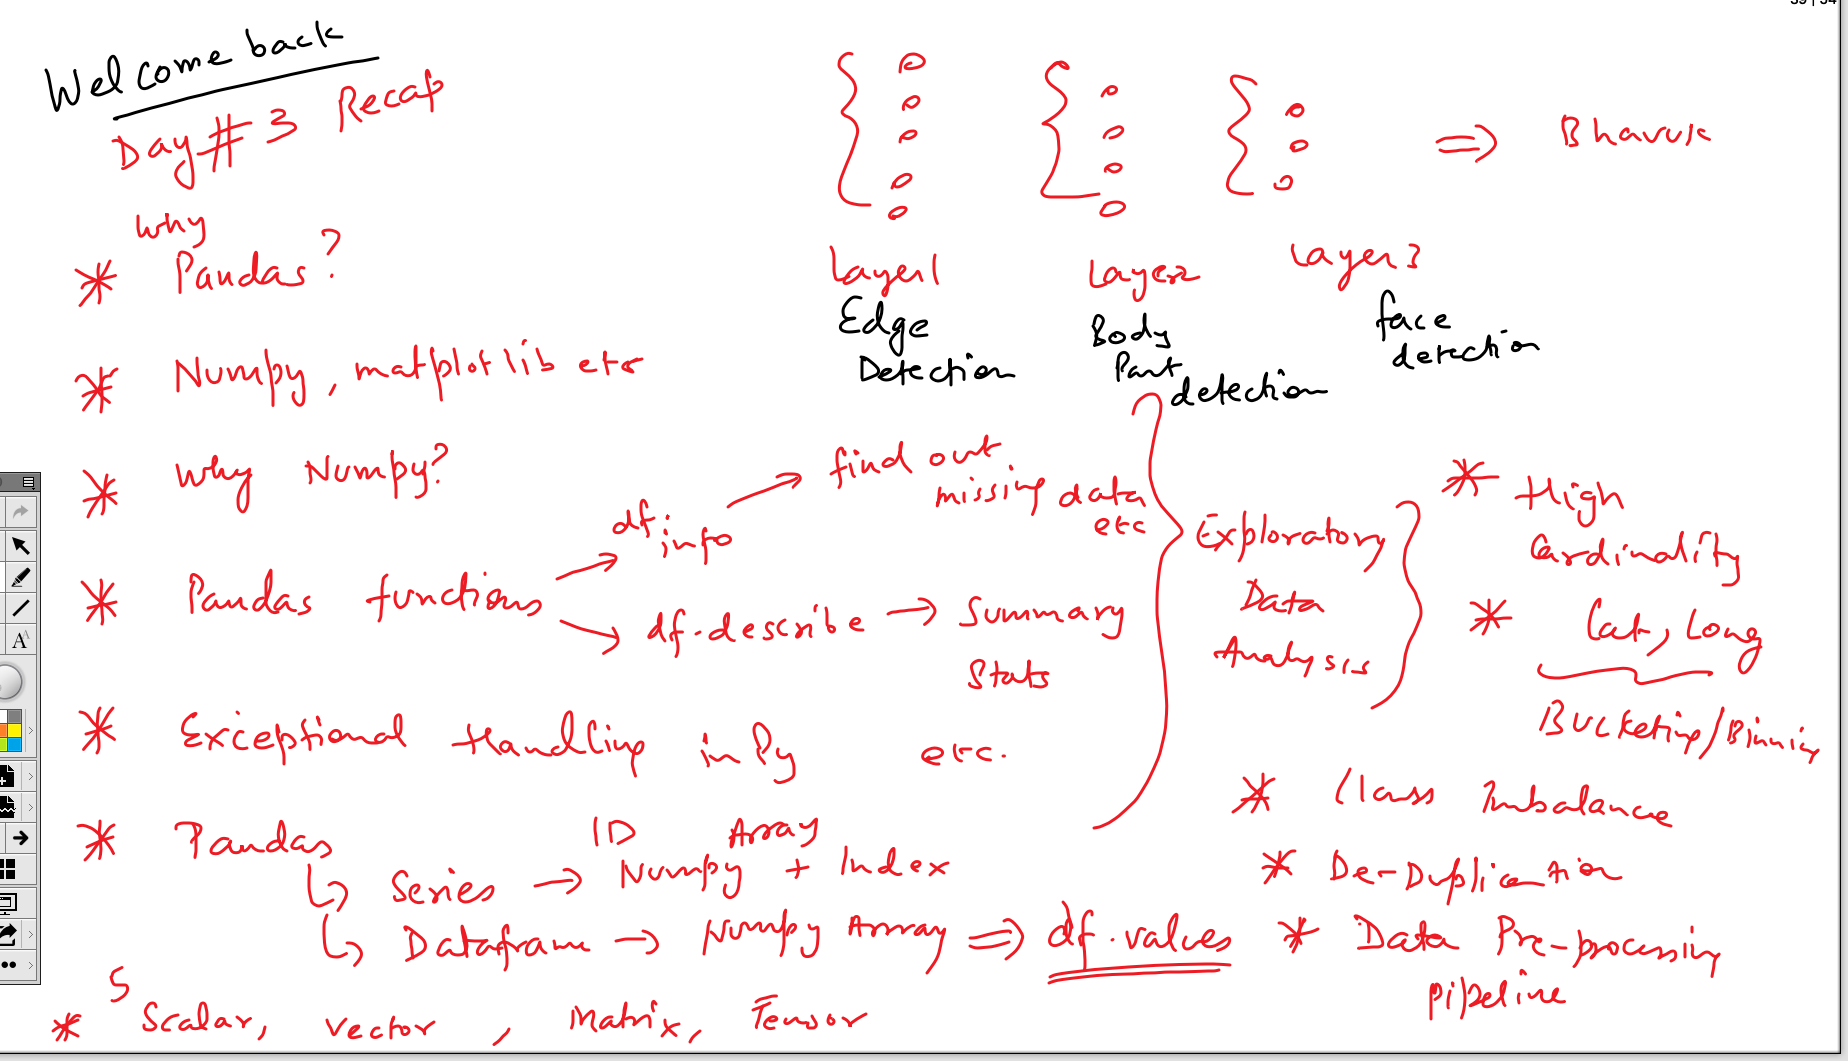 Welcome back
Day #3 Recap
Why
* Pandas?
* Numpy, matplotlib etc
* Why Numpy?
* Pandas functions
df.info → find out
missing data
etc
df.describe → Summary
Stats
* Exceptional Handling in Py etc.
* Pandas
1D Array
Series → Numpy + Index
Dataframe → Numpy Array ⇒ df.values
5
* Scalar, vector, Matrix, Tensor
⇒ Bhavuk
Layer1
Edge
Detection
Layer2
Body
Part
detection
Layer3
face
detection
Exploratory
Data
Analysis
* High
Cardinality
* Lat, Long
Bucketing/Binning
* Class Imbalance
* De-Duplication
* Data Pre-processing
pipeline
A